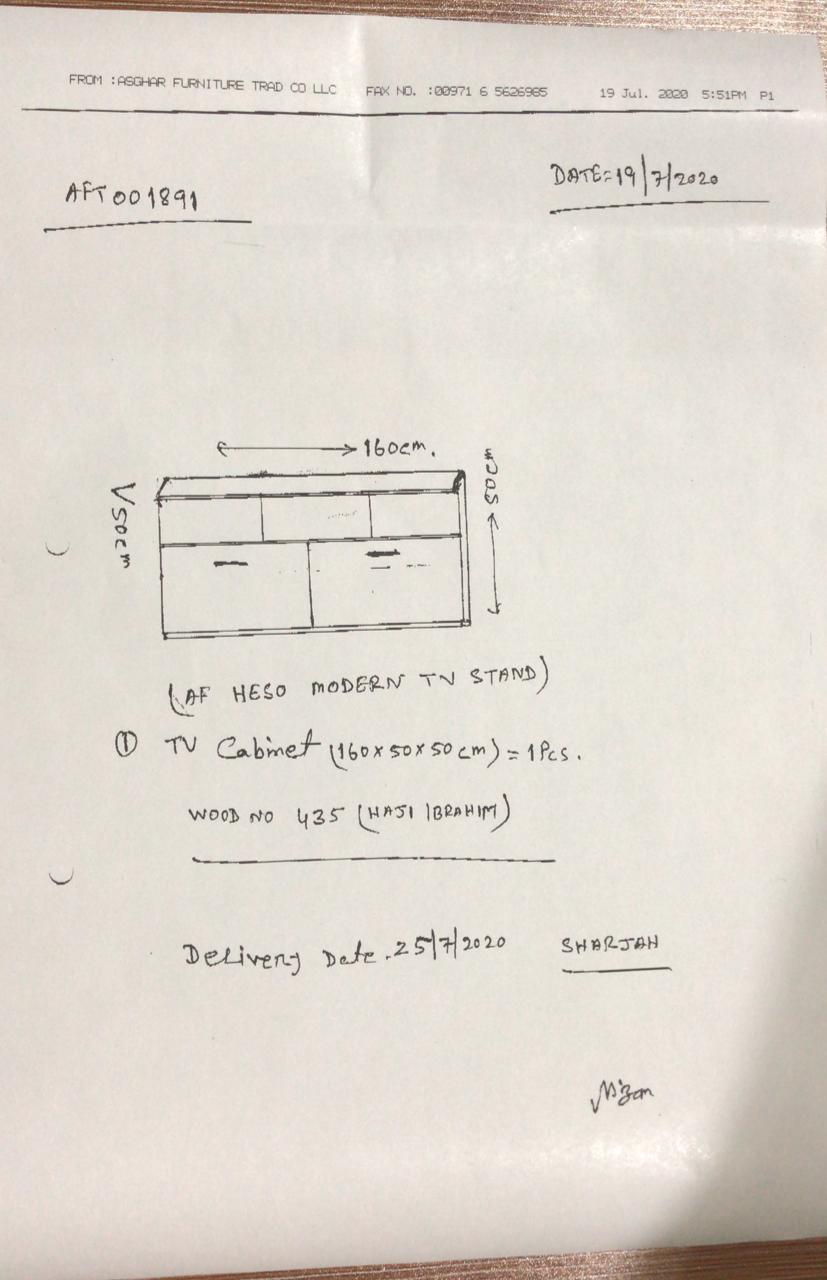 FROM :ASGHAR FURNITURE TRAD CO LLC FAX NO. :00971 6 5626985 19 Jul. 2020 5:51PM P1
AFT001891
DATE=19/7/2020
160cm.
50cm
50cm
(AF HESO MODERN TV STAND)
① TV Cabinet (160x50x50cm) = 1Pcs.
WOOD NO 435 (HAJI IBRAHIM)
Delivery Date.25/7/2020 SHARJAH
Nizam